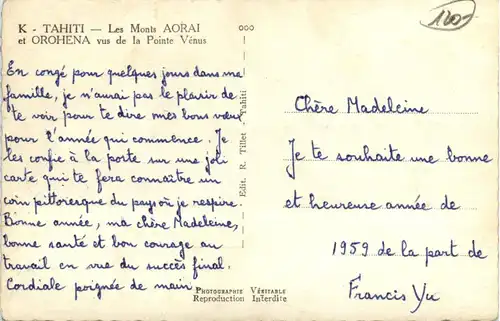 K - TAHITI — Les Monts AORAI
et OROHENA vus de la Pointe Vénus
En congé pour quelques jours dans ma
famille, je n'aurai pas le plaisir de
te voir pour te dire mes bons vœux
pour l'année qui commence. Je
les confie à la poste sur une joli
carte qui te fera connaître un
coin pittoresque du pays où je respire.
Bonne année, ma chère Madeleine,
bonne santé et bon courage au
travail en vue du succès final.
Cordiale poignée de main.
Edit. R. Tillet - Tahiti
Photographie Véritable
Reproduction Interdite
1200
Chère Madeleine
Je te souhaite une bonne
et heureuse année de
1959 de la part de
Francis Yu